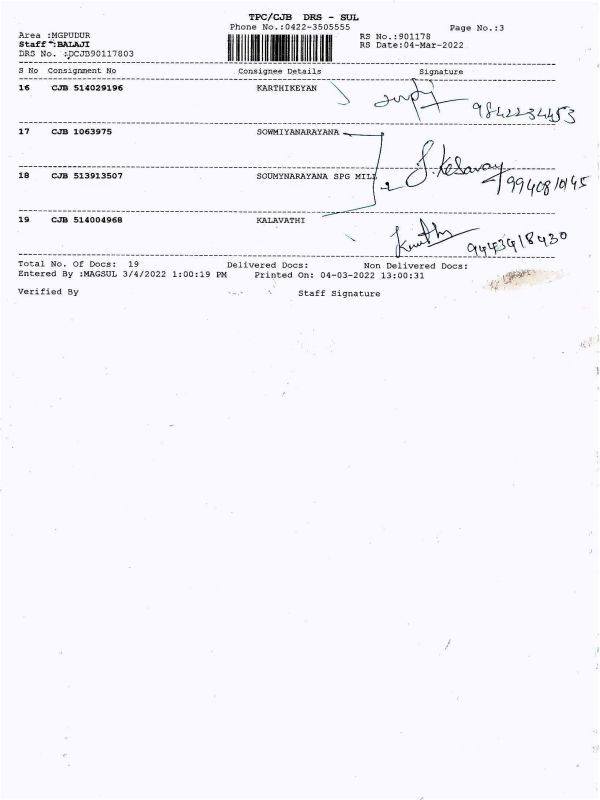 TPC/CJB DRS - SUL
Phone No.:0422-3505555 Page No.:3
Area :MGPUDUR RS No.:901178
Staff :BALAJI RS Date:04-Mar-2022
DRS No. :DCJB90117803
S No Consignment No Consignee Details Signature
16 CJB 514029196 KARTHIKEYAN
9842234453
17 CJB 1063975 SOWMIYANARAYANA
18 CJB 513913507 SOUMYNARAYANA SPG MILL 2 J.Kesavan
9940810145
19 CJB 514004968 KALAVATHI
9443918430
Total No. Of Docs: 19 Delivered Docs: Non Delivered Docs:
Entered By :MAGSUL 3/4/2022 1:00:19 PM Printed On: 04-03-2022 13:00:31
Verified By Staff Signature